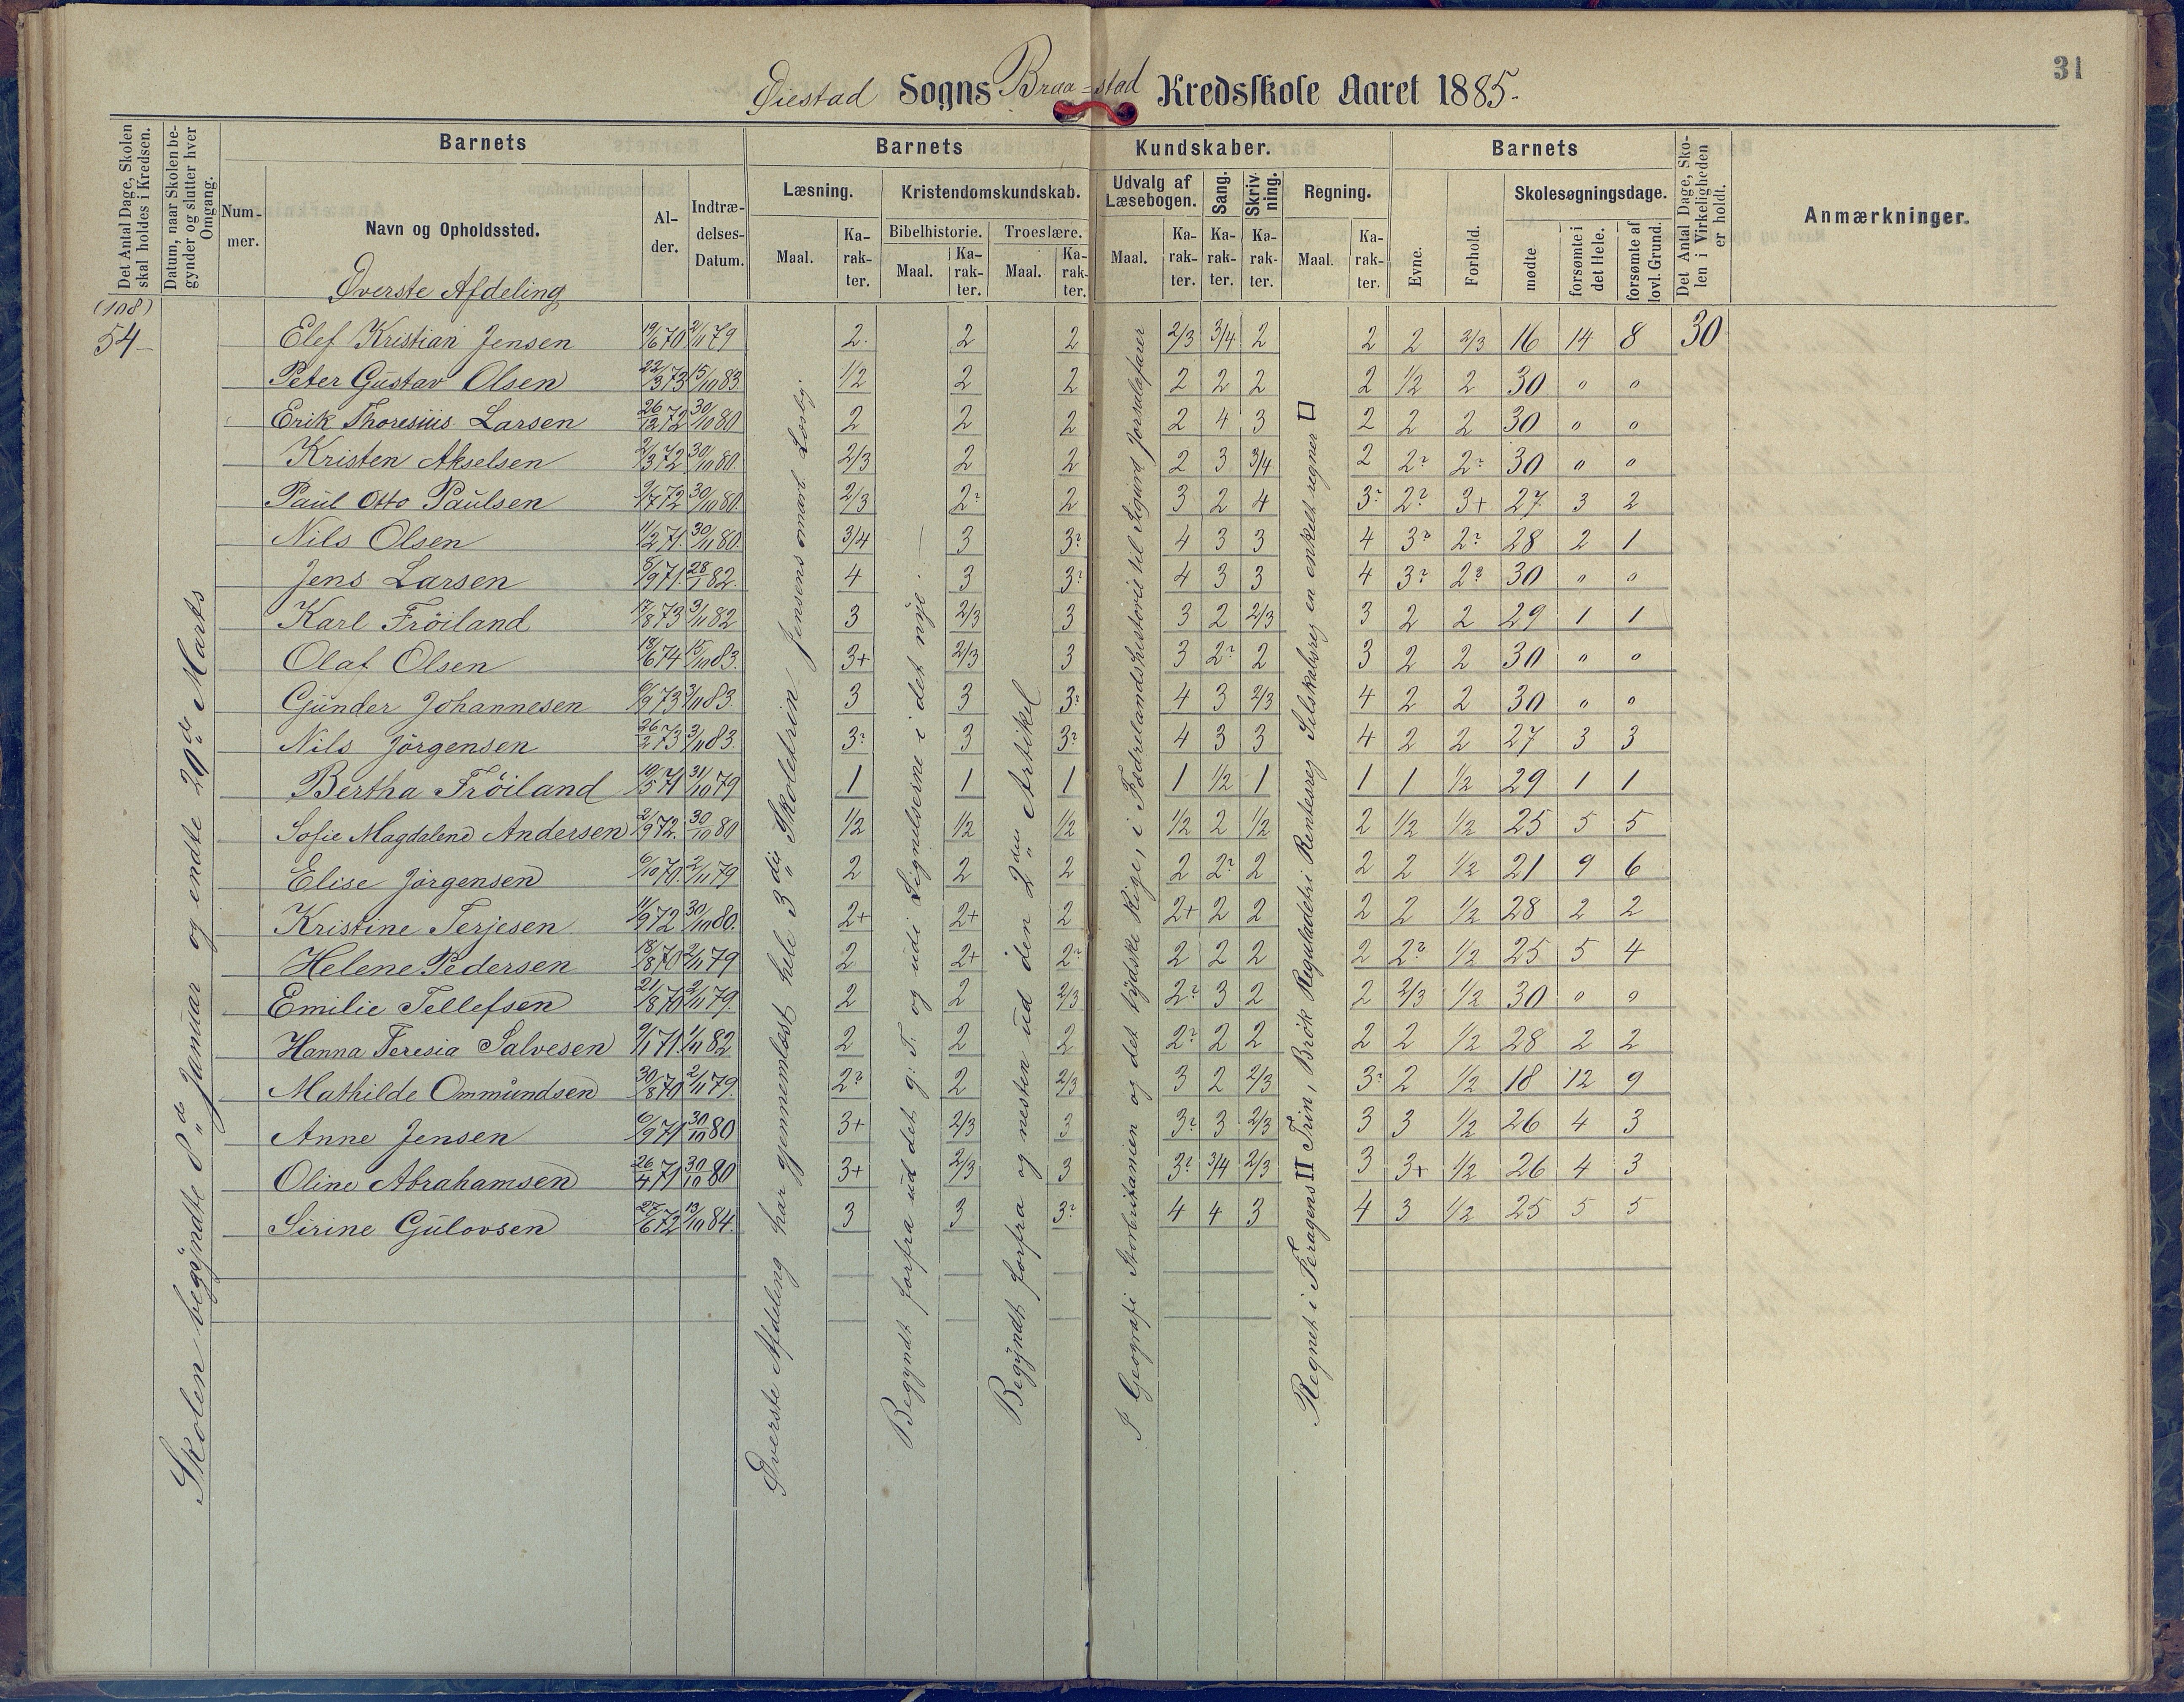 31
Øiestad Sogns Braa=stad Kredsskole Aaret 1885.
Det Antal Dage, Skolen skal holdes i Kredsen.
Datum, naar Skolen begynder og slutter hver Omgang.
Barnets
Nummer.
Navn og Opholdssted.
Alder.
Indtrædelses-Datum.
Barnets Kundskaber.
Læsning.
Maal.
Karakter.
Kristendomskundskab.
Bibelhistorie.
Maal.
Karakter.
Troeslære.
Maal.
Karakter.
Udvalg af Læsebogen.
Maal.
Karakter.
Sang.
Karakter.
Skrivning.
Karakter.
Regning.
Maal.
Karakter.
Barnets
Evne.
Forhold.
Skolesøgningsdage.
mødte
forsømte i det Hele.
forsømte af lovl. Grund.
Det Antal Dage, Skolen i Virkeligheden er holdt.
Anmærkninger.
Øverste Afdeling
(108)
54-
Elef Kristian Jensen 19/6 70 2/11 79 2. 2 2 2/3 3/4 2 2 2 2/3 16 14 8 30
Peter Gustav Olsen 22/3 73 15/10 83. 1/2 2 2 2 2 2 2 1/2 2 30 " "
Erik Thoresius Larsen 26/12 72 30/10 80 2 2 2 2 4 3 2 2 2 30 " "
Kristen Akselsen 2/3 72. 30/10 80. 2/3 2 2 2 3 3/4 2 2? 2? 30 " "
Paul Otto Paulsen 9/7 72 30/10 80. 2/3 2? 2 3 2 4 3? 2? 3+ 27. 3 2
Nils Olsen 11/2 71. 30/11 80. 3/4 3 3? 4 3 3 4 3? 2? 28 2 1
Jens Larsen 5/9 71. 28/1 82. 4 3 3? 4 3 3 4 3? 2? 30 " "
Karl Fröiland 17/8 73 3/11 82 3 2/3 3 3 2 2/3 3 2 2 29 1 1
Olaf Olsen 18/6 74 15/10 83. 3+ 2/3 3 3 2? 2 3 2 2 30 " "
Gunder Johannesen 6/9 73 3/11 83. 3 3 3? 4 3 2/3 4 2 2 30 " "
Nils Jörgensen 26/2 73 3/11 83. 3? 3 3? 4 3 3 4 2 2 27 3 3
Bertha Fröiland 10/5 71 31/10 79 1 1 1 1 1/2 1 1 1 1/2 29 1 1
Sofie Magdalene Andersen 2/9 72. 30/10 80 1/2 1/2 1/2 1/2 2 1/2 2 1/2 1/2 25 5 5
Elise Jörgensen 6/10 70. 2/11 79 2 2 2 2 2? 2 2 2 1/2 21 9 6
Kristine Terjesen 11/9 72 30/10 80. 2+ 2+ 2 2+ 2 2 2 2 1/2 28 2 2
Helene Pedersen 18/8 70 2/11 79 2 2+ 2? 2 2 2 2 2? 1/2 25 5 4
Emilie Tellefsen 21/8 70 2/11 79. 2 2 2/3 2? 3 2 2 2/3 1/2 30 " "
Hanna Teresia Salvesen 9/1 71. 1/11 82 2 2 2 2? 2 2 2 2 1/2 28 2 2
Mathilde Ommundsen 30/8 70 2/11 79. 2? 2 2/3 3 2 2/3 3? 2 1/2 18 12 9
Anne Jensen 6/9 71 30/10 80 3+ 2/3 3 3? 3 2/3 3 3 1/2 26 4 3
Oline Abrahamsen 26/4 71 30/10 80 3+ 2/3 3 3? 3/4 2/3 3 3+ 1/2 26 4 3
Sirine Gulovsen 27/6 72 13/10 84. 3 3 3? 4 4 3 4 3 1/2 25 5 5
Skolen begyndte 8de Januar og endte 20de Marts
Øverste Afdeling har gjennemlæst hele 3die Skoletrin Jensens
Begyndt forfra ud det g: T. og udi Lignelserne i det nye.
Begyndt forfra og nesten ud den 2den Artikel
I Geografi Storbritanien og det tydske Rige, i Fædrelandshistorie til Sigurd Jorsalafarer
Regnet i Feragens II Trin, Brök Reguladetri Rentesreg Selskabsreg en enkelt regner